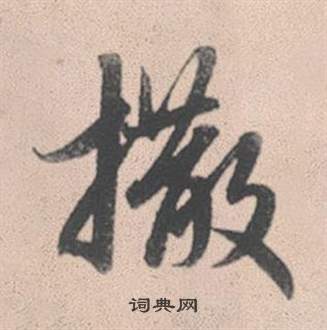 撒
词典网